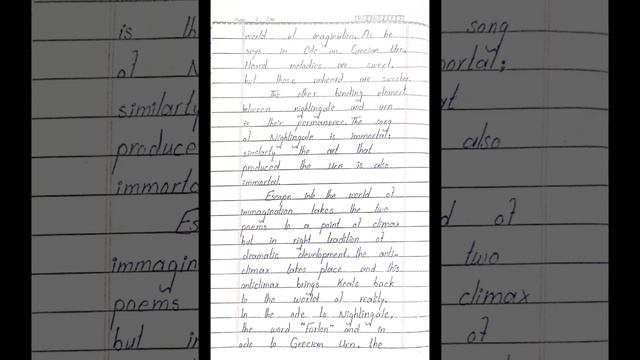 world of imagination. As he
says in Ode on Grecian Urn.
Heard melodies are sweet,
but those unheard are sweeter.
The other binding element
between nightingale and urn
is their permanence. The song
of Nightingale is immortal;
similarty the art that
produced the Urn is also
immortal.
Escape into the world of
immagination takes the two
poems to a point of climax
but in right tradition of
dramatic development, the anti-
climax takes place and this
anticlimax brings Keats back
to the world of reality.
In the ode to Nightingale,
the word "Forlon" and in
ode to Grecian Urn, the